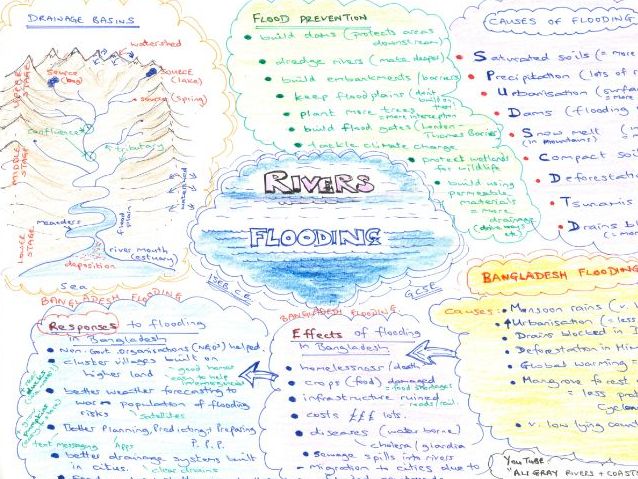 DRAINAGE BASINS
watershed
source
(bog)
SOURCE
(lake)
source (spring)
UPPER STAGE
confluence
tributary
MIDDLE STAGE
watershed
meanders
flood plain
river mouth
(estuary)
deposition
LOWER STAGE
Sea
FLOOD PREVENTION
build dams (protects areas
downstream)
dredge rivers (make deeper)
build embankments (barriers)
keep floodplains (don't
build on
them)
plant more trees
= more interception
build flood gates (London
Thames Barrier)
tackle climate change
protect wetlands
for wildlife
build using
permeable
materials
= more
drainage
(driveways
etc)
CAUSES OF FLOODING
Saturated soils (= more
Precipitation (lots of
Urbanisation (surfa
= more
Dams (flooding
Snow melt
(in mountains)
Compact soi
Deforestati
Tsunamis
Drains b
RIVERS
FLOODING
GCSE
BANGLADESH FLOODING
Responses to flooding
in Bangladesh
Non-Govt. Organisations (NGO's) helped
cluster villages built on
higher land
= good honour
easy to help
better weather forecasting to
warn population of flooding
risks
satellites
Better Planning, Predicting, Preparing
P.P.P.
text messaging
Apps
better drainage systems built
in cities
clear drains
BANGLADESH FLOODING
Effects of flooding
in Bangladesh
homelessness / death
crops (food) damaged
= food shortages
infrastructure ruined
roads/rail
costs £££ lots.
diseases (water borne)
cholera / giardia
Sewage spills into rivers
Migration to cities due to
BANGLADESH FLOODING
Causes:
Monsoon rains (v.
↑ Urbanisation (= less
Drains blocked in
Deforestation in Him
Global warming
Mangrove forest
= less prot
Cyclo
v. low lying count
YouTube:
"ALI GRAY RIVERS + COASTS